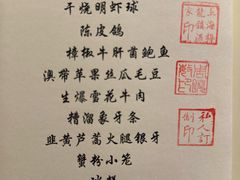 干烧明虾球
陈皮鸽
樟椒牛肝菌鲍鱼
澳带苹果丝瓜毛豆
生爆雪花牛肉
糟溜象牙条
韭黄芦蒿火腿银牙
蟹粉小笼
私人订
制印